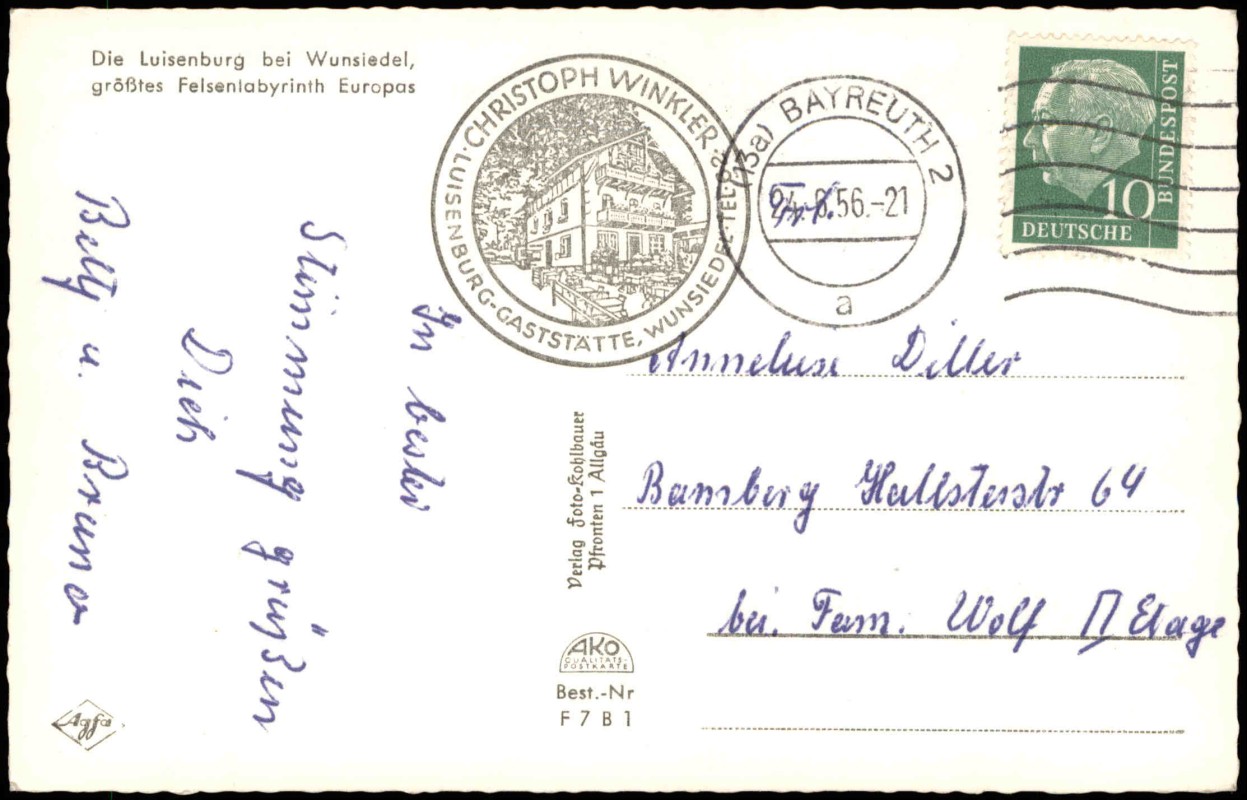 Die Luisenburg bei Wunsiedel,
größtes Felsenlabyrinth Europas
LUISENBURG-GASTSTÄTTE, WUNSIEDEL·TEL·
·CHRISTOPH WINKLER·
(13a) BAYREUTH 2
24.-8.56.-21
a
10
BUNDESPOST
DEUTSCHE
In bester
Stimmung grüßen
Dich
Betty u. Bruno
Verlag Foto-Kohlbauer
Pfronten 1 Allgäu
AKO
QUALITÄTS-
POSTKARTE
Best.-Nr
F 7 B 1
Agfa
Anneliese Diller
Bamberg Hallsterstr 64
bei. Fam. Wolf II Etage